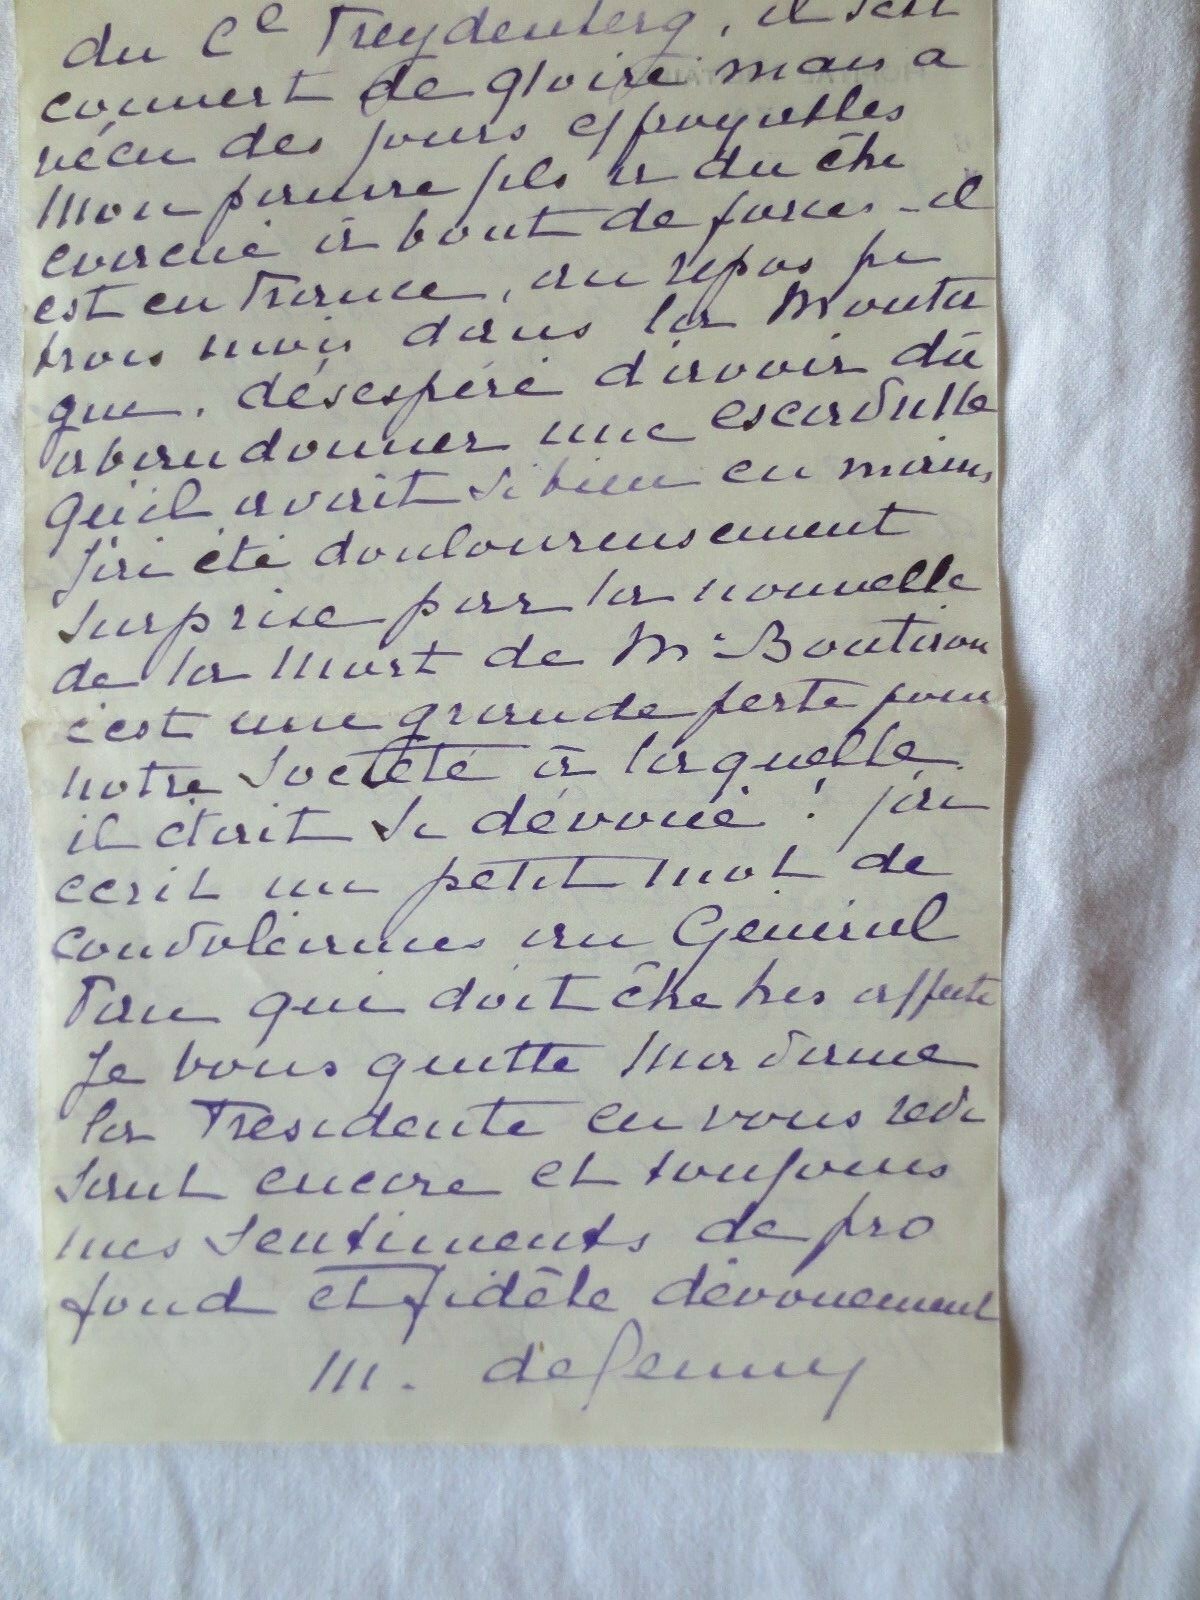 du Cel Freydenberg, il s'est
couvert de gloire mais a
vécu des jours effroyables
Mon pauvre fils a du être
évacué à bout de forces - il
est en France, au repos pr
trois mois dans la Monta
gne, désespéré d'avoir dû
abandonner une escadrille
qu'il avait si bien en mains,
J'ai été douloureusement
surprise par la nouvelle
de la mort de Mr Boutiron
c'est une grande perte pour
notre Société à laquelle
il était si dévoué ! j'ai
écrit un petit mot de
condoléances au Général
Pau qui doit être très affecté
Je vous quitte Madame
la Présidente en vous redi
sant encore et toujours
mes sentiments de pro
fond et fidèle dévouement
M.